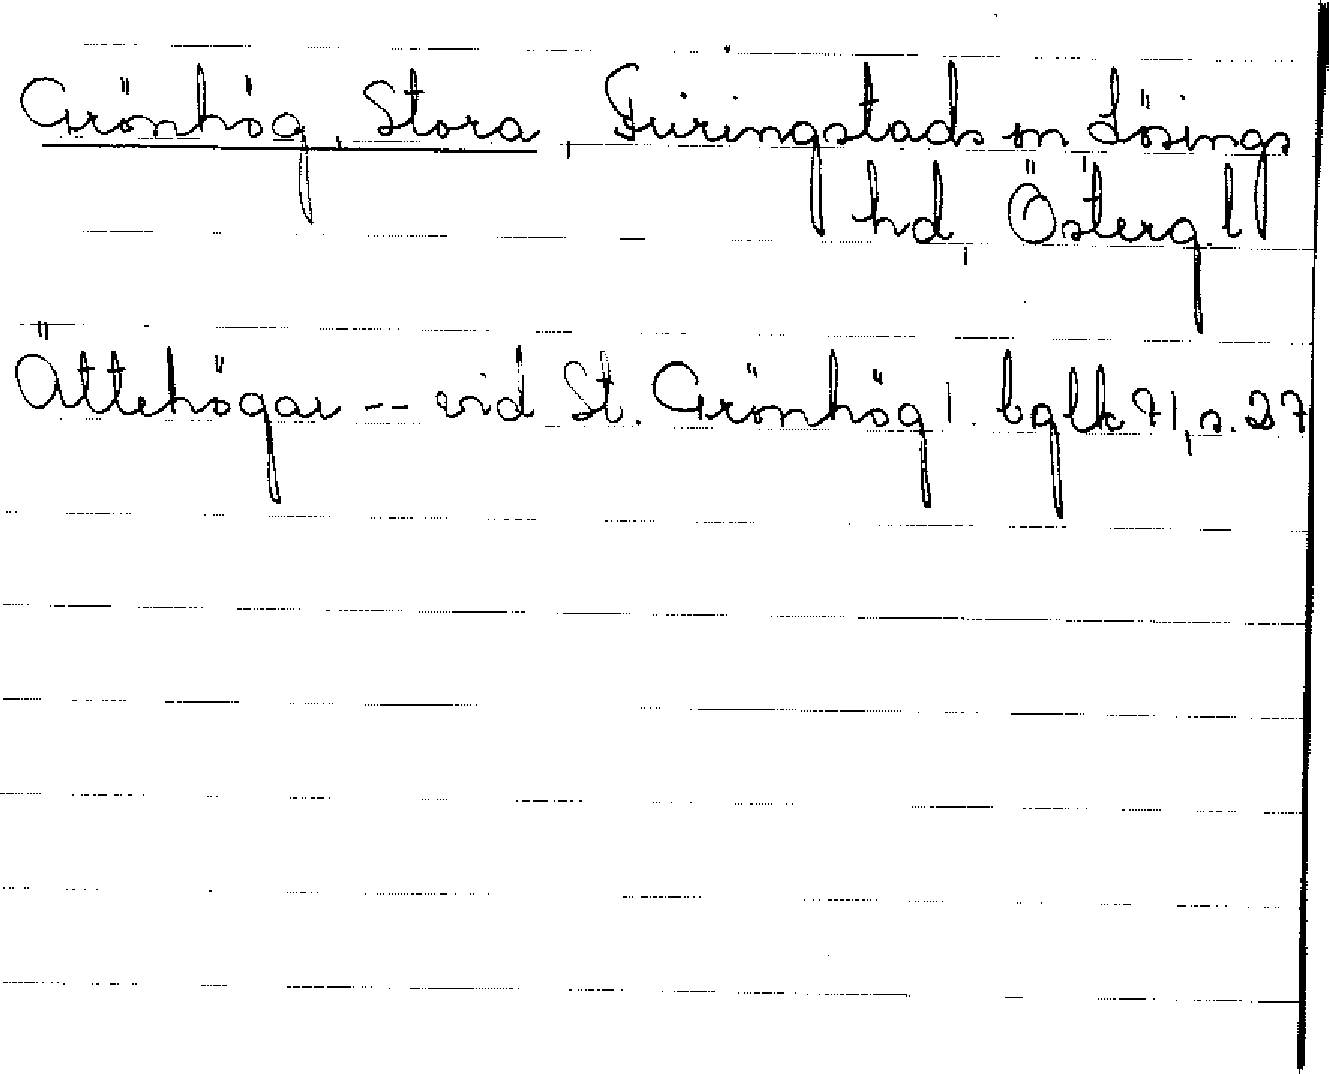 Grönhög, Stora, Furingstads sn Lösings
hd, Österg. l
Ättehögar -- vid St. Grönhög l. bglk 71, s. 27